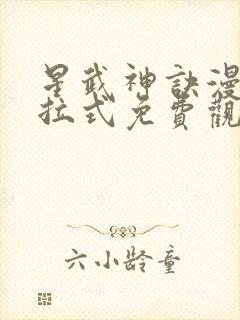 星武神訣漫
拉式免費觀
六小龄童